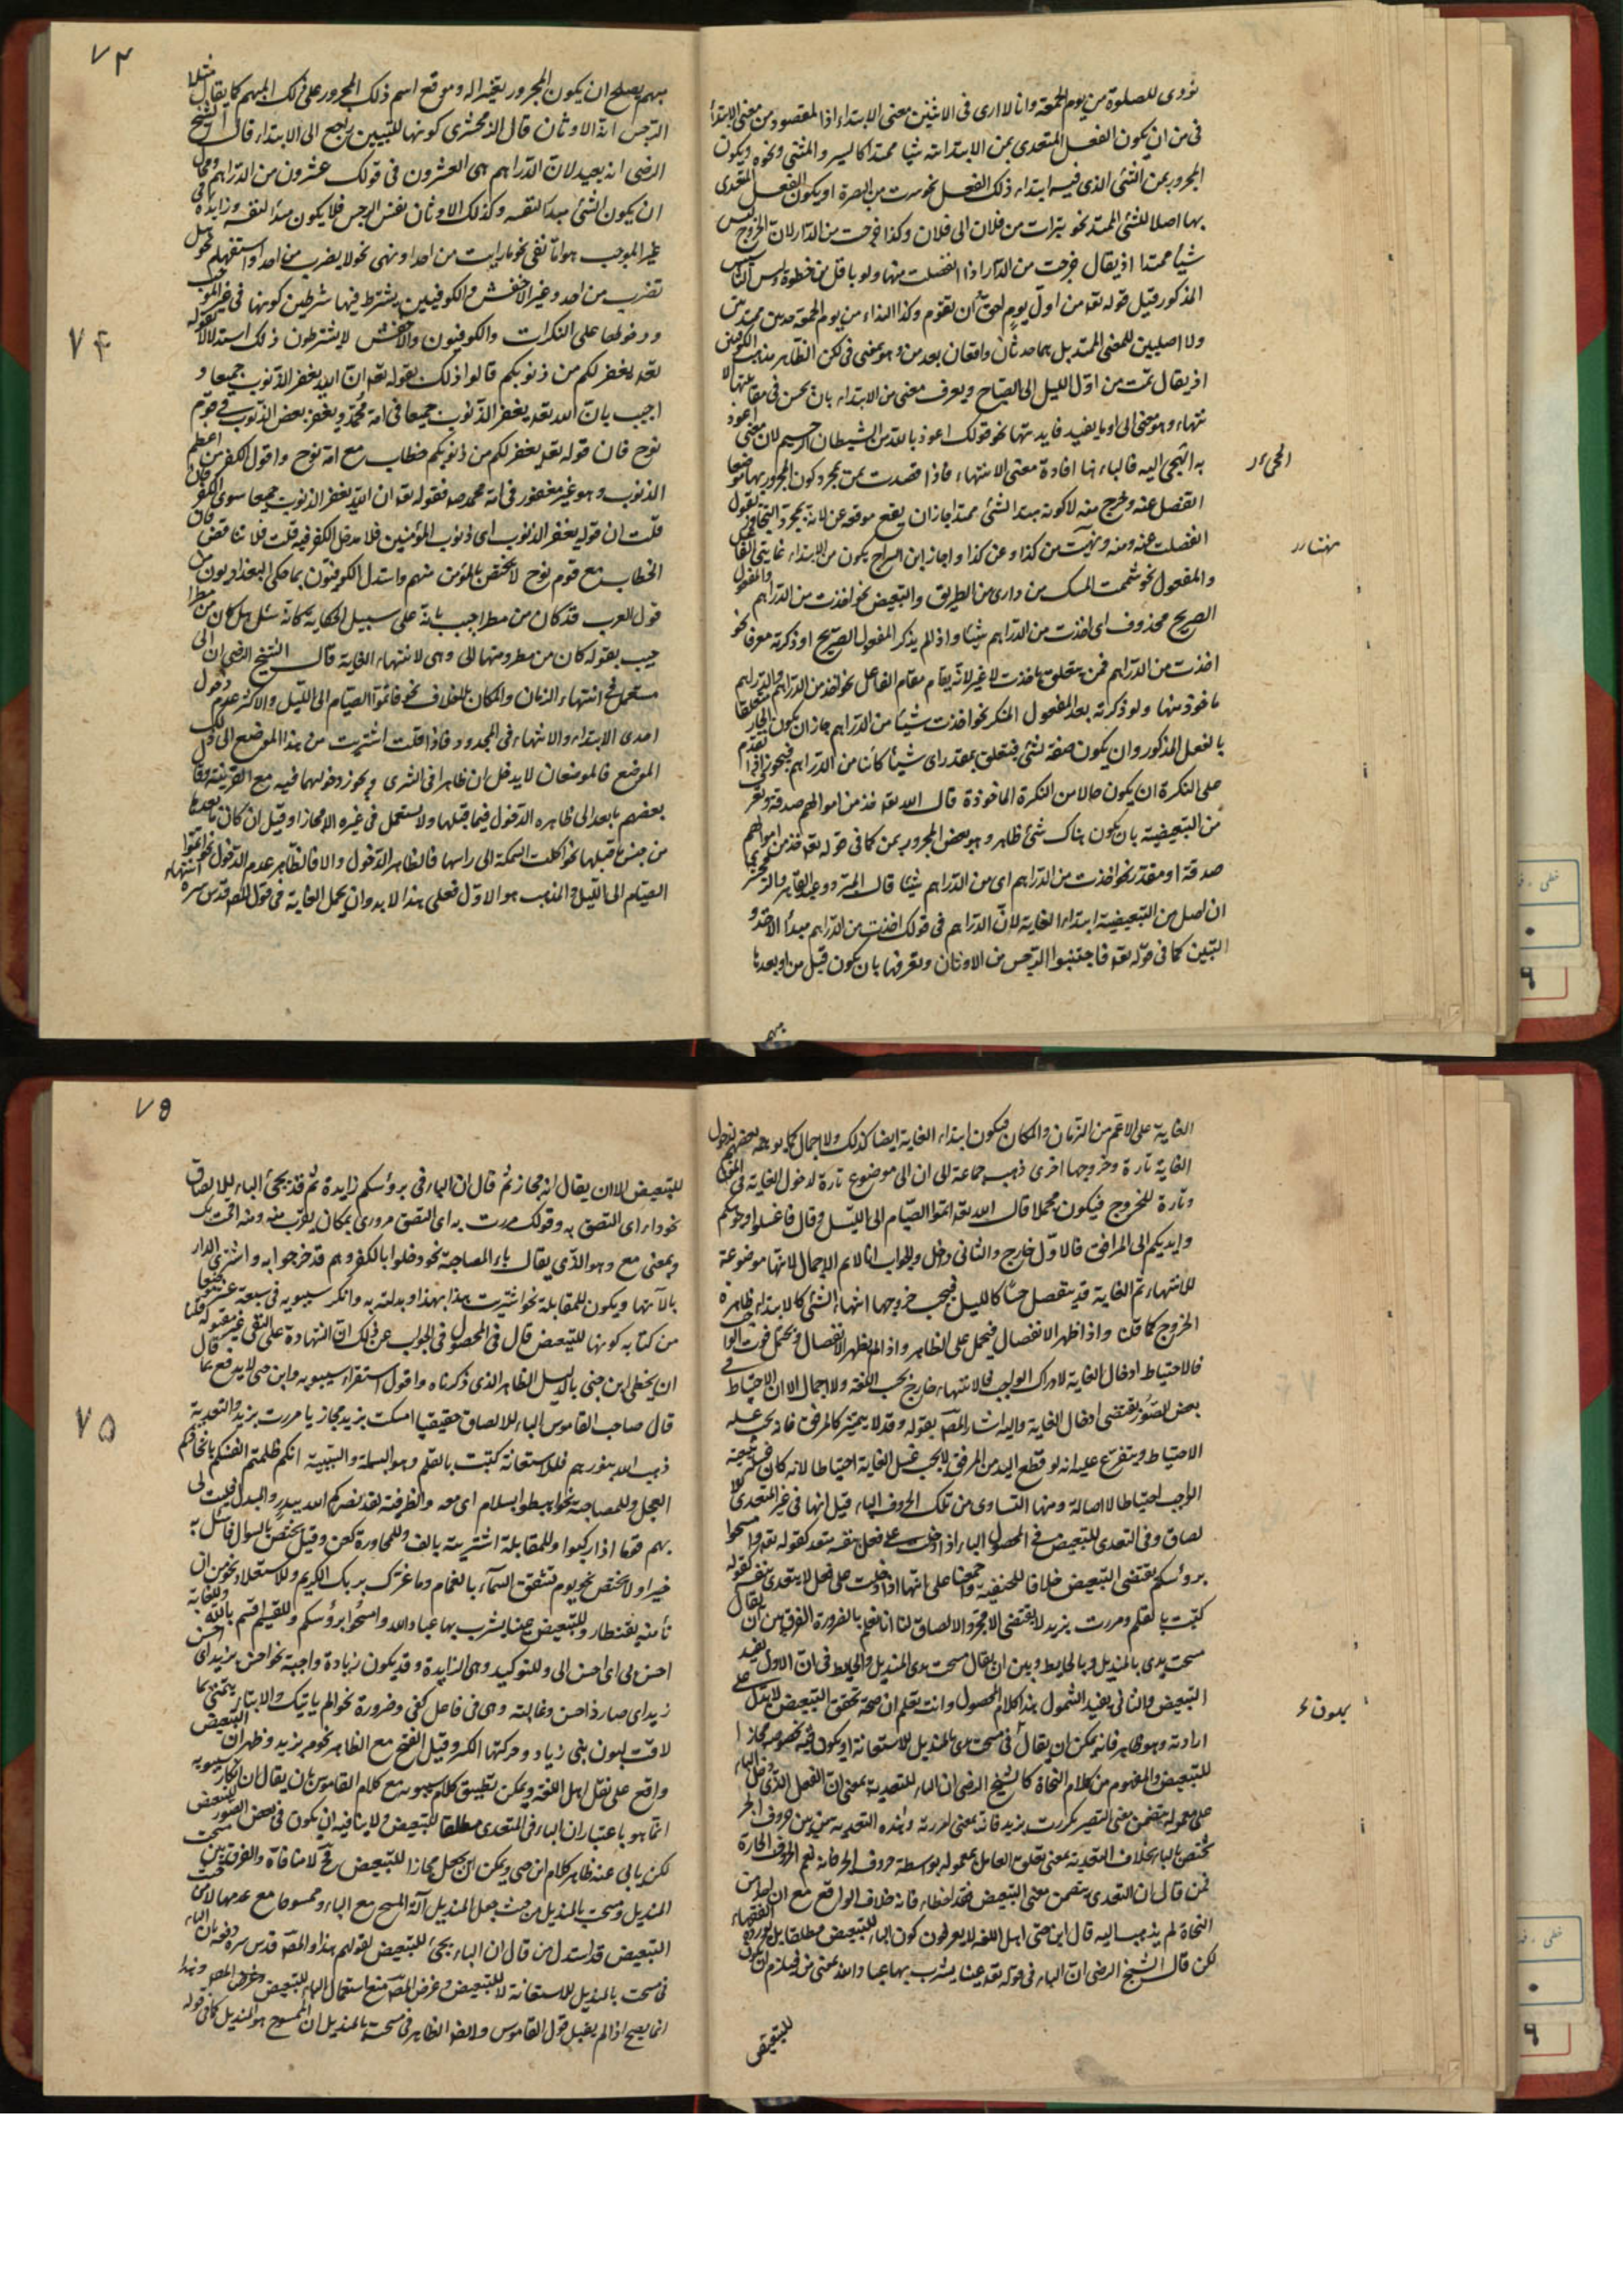 نودى للصلوة من يوم الجمعة وانا لا ارى فى الاثنين معنى الابتداء اذا المقصود من معنى الابتداء
فى من ان يكون الفعل المتعدى بمن الابتدائية شيئا ممتدا كالسير والمشى ونحوه ويكون
المجرور بمن الشئ الذى فيه ابتداء ذلك الفعل نحو سرت من البصرة او يكون الفعل المتعدى
بها اصلا للشئ الممتد نحو تبرات من فلان الى فلان وكذا خرجت من الدار لان الخروج ليس
شيئا ممتدا اذ يقال خرجت من الدار اذا انفصلت منها ولو باقل من خطوة وليس التاسيس
المذكور قبل قوله تعه من اول يوم احق ان تقوم وكذا النداء من يوم الجمعة حدثين ممتدين
ولا اصليين للمعنى الممتد بل هما حدثان واقعان بعد من وهو بمعنى فى لكن الظاهر مذهب الكوفيين
اذ يقال نمت من اول الليل الى الصباح ويعرف معنى من الابتداء بان يحسن فى مقابلتها الا
نتهاء وهو معنى الى او ما يفيد فايدتها نحو قولك اعوذ بالله من الشيطان الرجيم لان معنى اعوذ
به التجى اليه فالباء ههنا افادة معنى الانتهاء فاذا قصدت بمن مجرد كون المجرور بها موضعا
انفصل عنه وخرج منه لا كونه مبتدا لشئ ممتد اجاز ان يقع موقعه عن لانه لمجرد التجاوز تقول
انفصلت عنه ومنه ونهيت من كذا وعن كذا واجاز ابن السراج يكون من لابتداء غايتى الفاعل
والمفعول نحو شممت المسك من دارى من الطريق والتبعيض نحو اخذت من الدراهم والمفعول
الصريح محذوف اى اخذت من الدراهم شيئا واذا لم يذكر المفعول الصريح او ذكرته معرفا نحو
اخذت من الدراهم فمن يتعلق باخذت لا غير لانه يقام مقام الفاعل نحو اخذ من الدراهم والدراهم
ماخوذ منها ولو ذكرته بعد المفعول المنكر نحو اخذت شيئا من الدراهم جاز ان يكون الجار متعلقا
بالفعل المذكور وان يكون صفة لشئ فيتعلق بمقدر اى شيئا كائنا من الدراهم فيجوز اذا تقدم
على النكرة ان يكون حالا من النكرة الماخوذة قال الله تعه خذ من اموالهم صدقة وتعرف
من التبعيضية بان يكون هناك شئ ظاهر وهو بعض المجرور بمن كما فى قوله تعه خذ من اموالهم
صدقة او مقدر نحو اخذت من الدراهم اى من الدراهم شيئا قال المبرد وعبد القاهر والزمخشرى
ان اصل من التبعيضية ابتداء الغاية لان الدراهم فى قولك اخذت من الدراهم مبدأ الاخذ و
التبيين كما فى قوله تعه فاجتنبوا الرجس من الاوثان وتعرفها بان يكون قبل من او بعدها
مبهم
٧٤
مبهم يصلح ان يكون المجرور بمن تفسيرا له وموقع اسم ذلك المجرور على ذلك المبهم كما يقال مثلا
الرجس انه الاوثان قال الزمخشرى كونها للتبيين يرجع الى الابتداء قال الشيخ
الرضى انه بعيد لان الدراهم هى العشرون فى قولك عشرون من الدراهم ومحال
ان يكون الشئ مبدأ لنفسه وكذلك الاوثان نفس الرجس فلا يكون مبدأ لنفسه وزايدة فى
غير الموجب هو اما نفى نحو ما رايت من احد او نهى نحو لا يضرب من احد او استفهام نحو هل
تضرب من احد وغير الاخفش والكوفيين يشترط فيها شرطين كونها فى غير الموجب
ودخولها على النكرات والكوفيون والاخفش لا يشترطون ذلك استدلالا بقوله
تعه يغفر لكم من ذنوبكم قالوا ذلك بقوله تعه ان الله يغفر الذنوب جميعا و
اجيب بان الله تعه يغفر الذنوب جميعا فى امة محمد ويغفر بعض الذنوب فى قوم
نوح فان قوله تعه يغفر لكم من ذنوبكم خطاب مع امة نوح واقول الكفر من اعظم
الذنوب وهو غير مغفور فى امة محمد صه فقوله تعه ان الله يغفر الذنوب جميعا سوى الكفر فان
قلت ان قوله يغفر الذنوب اى ذنوب المؤمنين فلا مدخل الكفر فيه قلت فلا تناقض فان
الخطاب مع قوم نوح لا يختص بالمؤمن منهم واستدل الكوفيون بما حكى البغداديون من
قول العرب قد كان من مطر اجيب بانه على سبيل الحكاية كانه سئل هل كان من مطر
جيب بقوله كان من مطر ومنها الى وهى لانتهاء الغاية قال الشيخ الرضى ان الى
مستعمل فى انتهاء الزمان والمكان بلا خلاف نحو فاتموا الصيام الى الليل والاكثر عدم دخول
احدى الابتداء والانتهاء فى المحدود فاذا قلت اشتريت من هذا الموضع الى ذلك
الموضع فالموضعان لا يدخلان ظاهرا فى الشرى ويجوز دخولهما فيه مع القرينة وقال
بعضهم ما بعد الى ظاهره الدخول فيما قبلها ولا يستعمل فى غيره الا مجازا وقيل ان كان ما بعدها
من جنس ما قبلها نحو اكلت السمكة الى راسها فالظاهر الدخول والا فالظاهر عدم الدخول نحو اتموا
الصيام الى الليل والمذهب هو الاول فعلى هذا لا بد وان يحمل الغاية فى قول المصه قدس سره انتهاء
٧٤
الغاية على الاعم من الزمان والمكان فيكون ابتداء الغاية ايضا كذلك ولا اجمال كما يوهمه بعضهم لدخول
الغاية تارة وخروجها اخرى ذهب جماعة الى ان الى موضوع تارة لدخول الغاية فى المغيا
وتارة للخروج فيكون مجملا قال الله تعه اتموا الصيام الى الليل وقال فاغسلوا وجوهكم
وايديكم الى المرافق فالاول خارج والثانى دخل والجواب انا لا نم الاجمال لانها موضوعة
للانتهاء ثم الغاية قد ينفصل حسا كالليل فيجب خروجها انتهاء الشئ كالابتداء ظاهرة
الخروج كما قلنا واذا ظهر الانفصال فيحمل على الظاهر واذا لم يظهر الانفصال ويحتمل فوت الوا
فالاحتياط ادخال الغاية لادراك الواجب فالانتهاء خارج بحسب اللغة ولا اجمال الا ان الاحتياط فى
بعض الصور يقتضى ادخال الغاية واليه اشار المصه بقوله وقد لا يتميز كالمرفق فانه يجب غسله
الاحتياط ويتفرع عليه انه لو قطع اليد من المرفق لا يجب غسل الغاية احتياطا لانه كان
الواجب احتياطا لا اصالة ومنها التساوى من تلك الحروف الباء قيل انها فى غير المتعدى للا
لصاق وفى التعدى للتبعيض فى المحصول الباء اذا دخلت على فعل بنفسه متعد كقوله تعه وامسحوا
برؤسكم يقتضى التبعيض خلافا للحنفية واجمعنا على انها اذا دخلت على فعل لا يتعدى بنفسه كقوله
كتبت بالقلم ومررت بزيد لا يقتضى الا مجرد الالصاق لنا انا نعلم بالضرورة الفرق بين ان يقال
مسحت يدى بالمنديل وبالحايط وبين ان يقال مسحت يدى المنديل والحايط فى ان الاول يفيد
التبعيض والثانى يفيد الشمول هذا كلام المحصول وانت تعلم ان صحة تحقق التبعيض لا يدل على
ارادته وهو ظاهر فانه يمكن ان يقال فى مسحت يدى بالمنديل للاستعانة او يكون فيه بخصوصه مجازا
للتبعيض والمفهوم من كلام النحاة كالشيخ الرضى ان الباء للتعدية بمعنى ان الفعل الذى دخل الباء
على معموله يتضمن معنى التصيير كمررت بزيد فانه بمعنى امررته وهذه التعدية من بين حروف الجر
يختص بالباء بخلاف التعدية بمعنى تعلق العامل بمعموله بواسطة حروف الجر فانه يعم الحروف الجارة
فمن قال ان التعدى يتضمن معنى التبعيض فقد اخطا فانه خلاف الواقع مع ان احدا من
النحاة لم يذهب اليه قال ابن جنى اهل اللغة لا يعرفون كون الباء للتبعيض مطلقا بل يورده الفقهاء
لكن قال الشيخ الرضى ان الباء فى قوله تعه عينا يشرب بها عباد الله بمعنى من فيلزم ان يكون
للتبعيض
٧٥
للتبعيض الا ان يقال انه مجاز ثم قال ان الباء فى برؤسكم زايدة ثم قد يجئ الباء للالصاق
نحو داء اى التصق به وقولك مررت به اى التصق مرورى بمكان يقرب منه ومنه اقسمت بك
وبمعنى مع وهو الذى يقال باء المصاحبة نحو دخلوا بالكفر وهم قد خرجوا به واشترى الدار
بآلاتها ويكون للمقابلة نحو اشتريت هذا بهذا وبدلته به وانكر سيبويه فى سبعة عشر موضعا
من كتابه كونها للتبعيض قال فى المحصول فى الجواب عن ذلك ان الشهادة على النفى غير مقبولة قلنا
ان يخطئ ابن جنى بالدليل الظاهر الذى ذكرناه واقول استقراء سيبويه وابن جنى لا يدفع بما قال
قال صاحب القاموس الباء للالصاق حقيقيا امسكت بزيد مجازيا مررت بزيد وللتعدية
ذهب الله بنورهم وللاستعانة كتبت بالقلم وهو البسملة والسببية انكم ظلمتم انفسكم باتخاذكم
العجل وللمصاحبة نحو اهبطوا بسلام اى معه والظرفية لقد نصركم الله ببدر والبدل فليت لى
بهم قوما اذا ركبوا وللمقابلة اشتريته بالف وللمجاورة كعن وقيل يختص بالسوال فاسئل به
خبيرا ولا يختص نحو يوم تشقق السماء بالغمام وما غرك بربك الكريم وللاستعلاء نحو من ان
تأمنه بقنطار وللتبعيض عينا يشرب بها عباد الله وامسحوا برؤسكم وللقسم اقسم بالله وللغاية
احسن بى اى احسن الى وللتوكيد وهى الزايدة وقد يكون زيادة واجبة نحو احسن بزيد اى احسن
زيد اى صار ذا حسن وغالبة وهى فى فاعل كفى وضرورة نحو الم ياتيك والانباء تنمى بما
لاقت لبون بنى زياد وحركتها الكسر وقيل الفتح مع الظاهر نحو مر بزيد وظهر ان التبعيض
واقع على نقل اهل اللغة ويمكن تطبيق كلام سيبويه مع كلام القاموس بان يقال ان انكار سيبويه
انما هو باعتبار ان الباء فى المتعدى مطلقا للتبعيض ولا ينافيه ان يكون فى بعض الصور للتبعيض
لكن يابى عنه ظاهر كلام ابن جنى ويمكن ان يجعل مجازا للتبعيض فح لا منافاة والفرق بين مسحت
المنديل ومسحت بالمنديل من حيث جعل المنديل آلة المسح مع الباء وممسوحا مع عدمها لا من حيث
التبعيض قد استدل من قال ان الباء يجئ للتبعيض بقولهم هذا والمصه قدس سره دفعه بان الباء
فى مسحت بالمنديل للاستعانة لا للتبعيض وغرض المصه منع استعمال الباء للتبعيض
انما يصح اذا لم يقبل قول القاموس وايضا الظاهر فى مسحت بالمنديل ان الممسوح هو المنديل كما فى قوله
٧٥